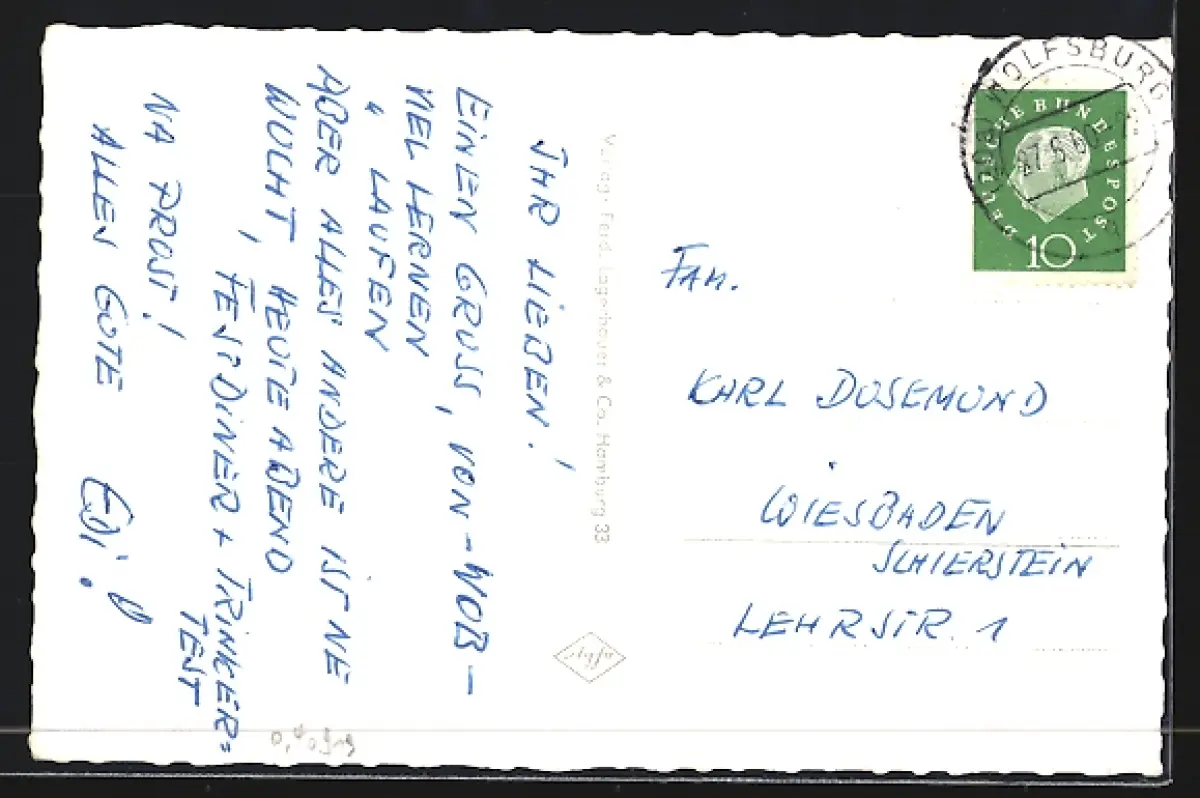 JHR LIEBEN!
EINEN GRUSS, VON-WOB-
VIEL LERNEN
" LAUFEN
ABER ALLES ANDERE IST NE
WUCHT, HEUTE ABEND
, FESTDINER + TRINKER=
TEST
NA PROST!
ALLES GUTE
EDI!
Verlag: Ferd. Lagerbauer & Co. Hamburg 33
WOLFSBURG
DEUTSCHE BUNDESPOST
10
FAM.
KARL DOSEMUND
WIESBADEN
SCHIERSTEIN
LEHRSTR. 1